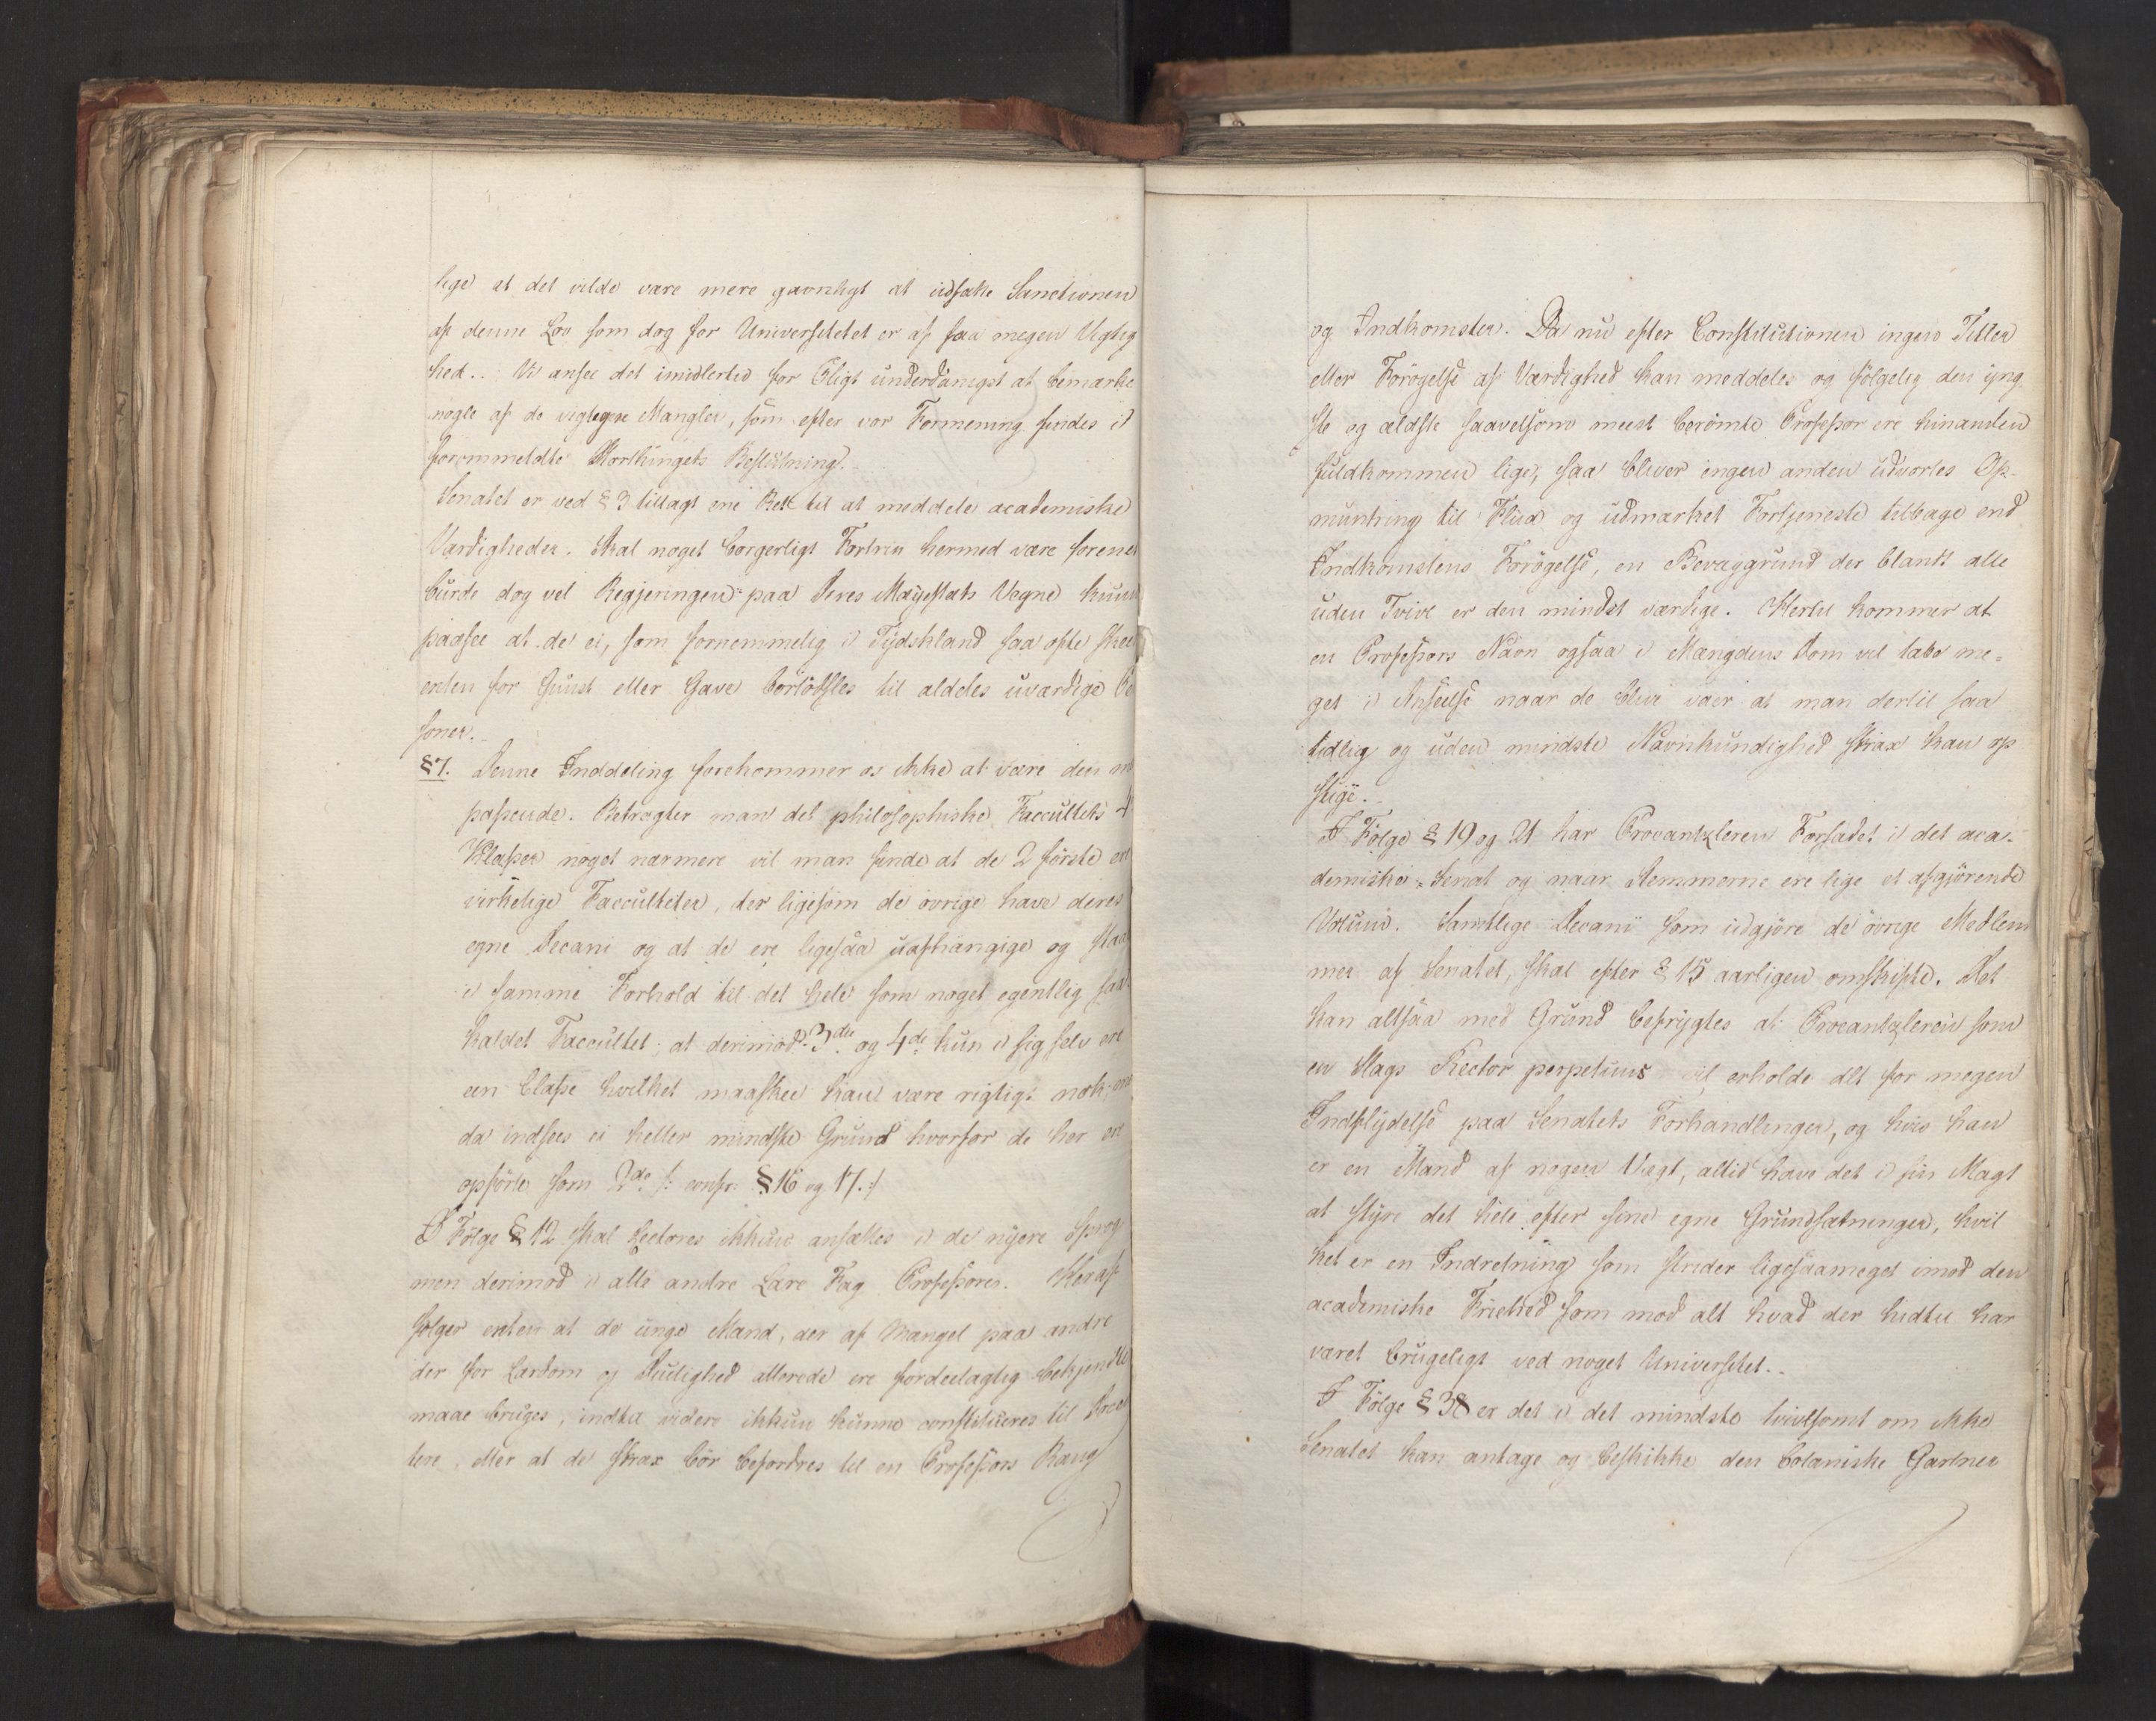 lige at det vilde være mere gavnligt at udsætte Sanctionen
af denne Lov som dog for Universitetet er af saa megen Vigtig
hed.. Vi ansee det imidlertid for Pligt underdanigst at bemærke
nogle af de vigtigere Mangler, som efter vor Formening findes i
forommeldte Storthingets Beslutning.
Senatet er ved § 3 tillagt ene Ret til at meddele academiske
Værdigheder. Skal noget borgerligt Fortrin hermed være forenet
burde dog vel Regjeringen paa Deres Majestæts Vegne kunne
paasee at de ei, som fornemmelig i Tydskland saa ofte skeer
enten for Gunst eller Gave bortødsles til aldeles uværdige Pe
soner.
§ 7. Denne Inddeling forekommer os ikke at være den
passende. Betragter man det philosophiske Facultets 4
Klasser noget nærmere vil man finde at de 2 første ere
virkelige Faculteter, der ligesom de øvrige have deres
egne Decani og at de ere ligesaa uafhængige og staae
i samme Forhold til det hele som noget egentlig saa
kaldet Facultet; at derimod 3die og 4de kun i sig selv ere
een Classe hvilket maaskee kan være rigtigt nok,
da indsees ei heller mindste Grund hvorfor de her ere
opførte som 2de /: confr: § 16 og 17. :/
I Følge § 12 skal Lectores ikkun ansættes i de nyere Sprog
men derimod i alle andre Lære Fag Professorer. Heraf
følger enten at de unge Mænd, der af Mangel paa andre
der for Lærdom og Duelighed allerede ere fordeelagtig bekjendte
maae bruges, indtil videre ikkun kunne constitueres til Do
tere, eller at de strax bør befordres til en Professors Rang
og Indkomster. Da nu efter Constitutionen ingen Titler
eller Forøgelse af Værdighed kan meddeles og følgelig den yng
ste og ældste saavelsom meest berømte Professor ere hinanden
fuldkommen lige, saa bliver ingen anden udvortes Op-
muntring til Fliid og udmærket Fortjeneste tilbage end
Indkomstens Forøgelse, en Bevæggrund der blandt alle
uden Tvivl er den mindst værdige. Hertil kommer at
en Professors Navn ogsaa i Mængdens Dom vil tabe me=
get i Anseelse naar de blive vaer at man dertil saa
tidlig og uden mindste Navnkundighed strax kan op
stige.
I Følge § 19 og 21 har Procantzleren Forsædet i det aca-
demiske Senat og naar Stemmerne ere lige et afgjørende
Votum. Samtlige Decani som udgjøre de øvrige Medlem
mer af Senatet, skal efter § 15 aarligen omskifte. Det
kan altsaa med Grund befrygtes at Procantzleren som
en Slags Rector perpetuus vil erholde alt for megen
Indflydelse paa Senatets Forhandlinger, og hvis han
er en Mand af nogen Vægt, altid have det i sin Magt
at styre det hele efter sine egne Grundsætninger, hvil
ket er en Indretning som strider ligesaameget imod den
academiske Friehed som mod alt hvad der hidtil har
været brugeligt ved noget Universitet.-
I Følge § 38 er det i det mindste tvivlsomt om ikke
Senatet kan antage og beskikke den botaniske Gartner